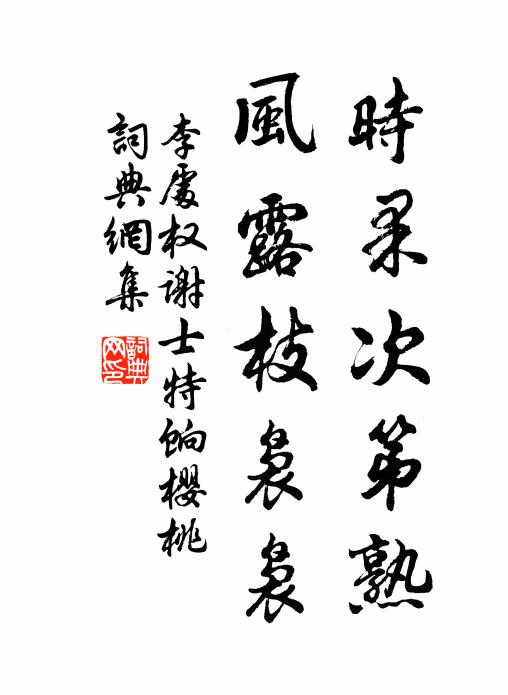 時果次第熟
風露枝裊裊
李處权谢士特餉櫻桃
詞典網集
詞典网印